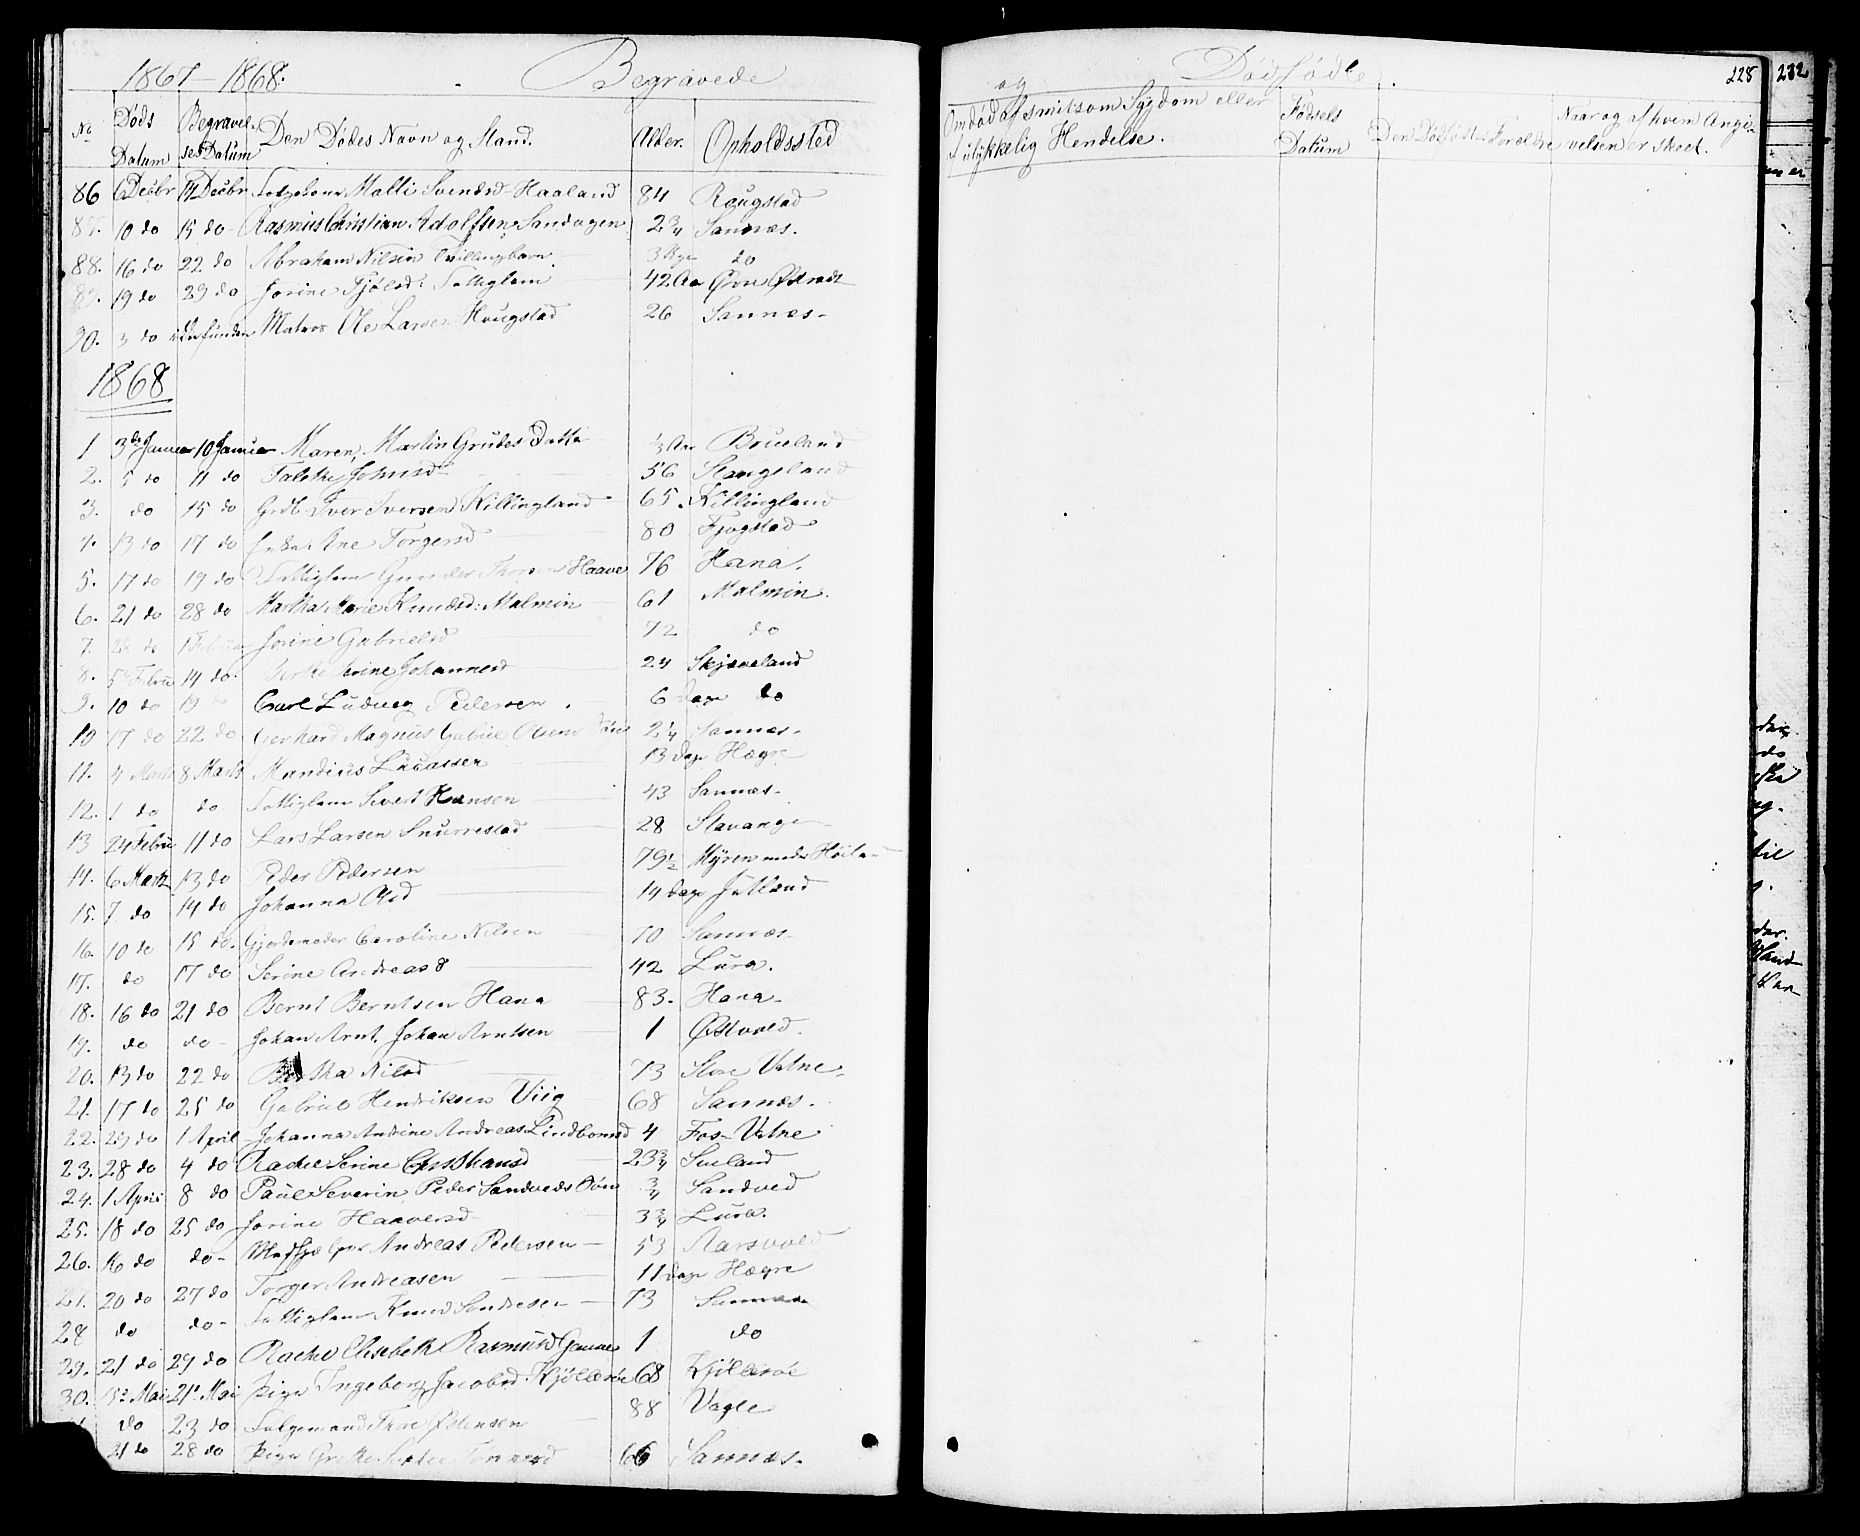 1867-1868. Begravede
No Døds Datum Begravelses Datum Den Dødes Navn og Stand. Alder. Opholdssted
86 6 Decbr 14 Decbr Malli Svendsd Haaland 84 Rougstad
87. 10 do 15 do Rasmus Christian Adolfsen Sandvigen 2 3/4 Sannæs.
88. 16 do 22 do Abraham Nilsen Tvillingbarn 3 do
89. 19 do 29 do Jorine Tjølsd: Fattiglem 42 Aar Øvre Østradt
90. 3 do Matros Ole Larsen Hougstad 26 Sannæs-
1868
1 3de Januar 10 Januar Maren, Martin Grudes Datter 1/3 Aar Brueland
2. 5 do 11 do Johnsd 56 Stangeland
3. do 15 do Iver Iversen Killingland 65 Killingland
4. 13 do 17 do Enke Ane Torgersd 80 Fjogstad
5. 17 do 19 do Fattiglem Gunder Haave 76 Hana.
6. 21 do 28 do Martha Marie Knudsd: Malmin 61 Malmin.
7. 28 do 1 Februar Jorine Gabrielsd 72 do
8. 5te Febru 14 do Berthe Serine Johannesd 24 Skjæveland
9. 10 do 19 do Carl Ludvig Pedersen. 6 Dage do
10 17 do 22 do Gerhard Magnus Gabriel Olsens Søn 2 1/4 Sannæs-
11. 4 Marts 8 Marts Mandius Lucassen 13 Dage Hægre
12. 1 do do Fattiglem Sivert Hansen 43 Sannæs-
13 24 Febru 11 do Lars Larsen Snurrestad 28 Stavanger
14. 6 Marts 13 do Peder Pedersen 79 1/2 Myren under Høiland
15. 7 do 14 do Johanna Olsd 14 Dage Jutland
16. 10 do 15 do. Gjordemoder Caroline Nilsen 70 Sannæs-
17. do 17 do Serine Andreasd 42 Lura.
18. 16 do 21 do Bernt Berntsen Hana 83. Hana-
19. do do- Johan Arnt, Johan Arntsen 1 Østvold.
20. 13 do 22 do Bertha Nilsd 73 Store Vatne-
21. 17 do 25 do Gabriel Hendriksen Viig 68 Sannæs.
22. 29 do 1 April Johanna Andrine Andreas Lindbomsd 4 Fos-Vatne
23. 28 do 4 do Rachel Serine Christiansd 23 3/4 Sveland
24. 1 April 8 do Paul Severin, Peder Sandveds Søn 3/4 Sandved
25. 18 do 25 do Jorine Haaversd 3 3/4 Lura.
26. 16 do do- Andreas Pedersen 53 Aarsvold
27. 20 do 27 do Torger Andreasen 11 Dage Hægre
28 do do- Fattiglem Knud Sondresen 73 Sannæs
29. 21 do 29 do Rachel Elisabeth Rasmusd Ganne 1 do
30. 15de Mai 21de Mai Pige Ingeborg Jacobsd. Kjøllerøe 68 Kjøllerøe
do 23 do Østensen 88 Vagle
21 do 28 do Pige 66 Sannæs-
og Dødfødte.
228
232
Om død af smitsom Sygdom eller af ulykkelig Hendelse. Fødsels Datum Den Dødfødtes Forældre Naar og af hvem Angivelsen er skeet.